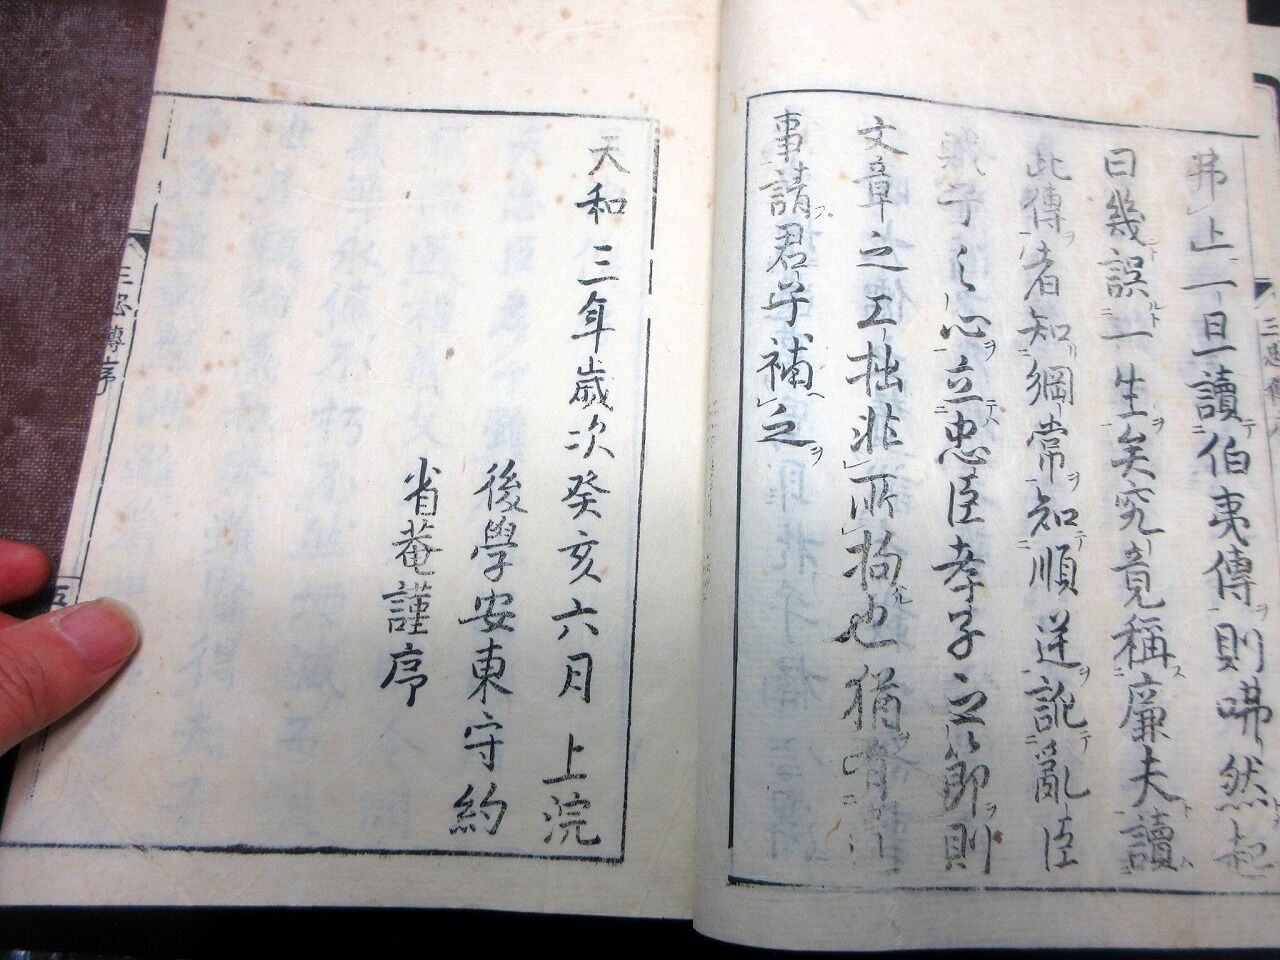 弗止一旦讀伯夷傳則咈然起
曰幾誤一生矣究竟稱廉夫讀
此傳者知綱常知順逆亂臣
賊子之心立忠臣孝子之節則
文章之工拙非所拘也猶有
事請君子補之
天和三年歲次癸亥六月上浣
後學安東守約
省菴謹序
三忠傳序
五